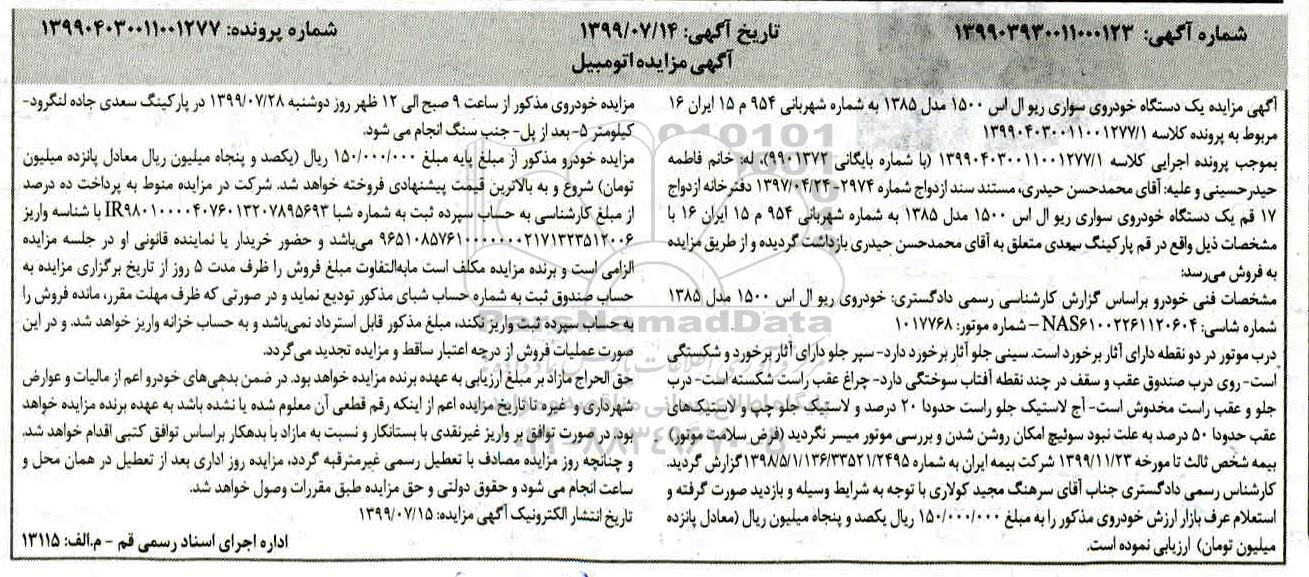 شماره آگهی: ۱۳۹۹۰۳۹۳۰۰۱۱۰۰۰۱۲۳
تاریخ آگهی: ۱۳۹۹/۰۷/۱۴
شماره پرونده: ۱۳۹۹۰۴۰۳۰۰۱۱۰۰۱۲۷۷
آگهی مزایده اتومبیل
آگهی مزایده یک دستگاه خودروی سواری ریو ال اس ۱۵۰۰ مدل ۱۳۸۵ به شماره شهربانی ۹۵۴ م ۱۵ ایران ۱۶
مربوط به پرونده کلاسه ۱۳۹۹۰۴۰۳۰۰۱۱۰۰۱۲۷۷/۱
بموجب پرونده اجرایی کلاسه ۱۳۹۹۰۴۰۳۰۰۱۱۰۰۱۲۷۷/۱ (با شماره بایگانی ۹۹۰۱۳۷۲)، له: خانم فاطمه
حیدرحسینی و علیه: آقای محمدحسن حیدری، مستند سند ازدواج شماره ۲۹۷۴-۱۳۹۷/۰۴/۲۴ دفترخانه ازدواج
۱۷ قم یک دستگاه خودروی سواری ریو ال اس ۱۵۰۰ مدل ۱۳۸۵ به شماره شهربانی ۹۵۴ م ۱۵ ایران ۱۶ با
مشخصات ذیل واقع در قم پارکینگ سعدی متعلق به آقای محمدحسن حیدری بازداشت گردیده و از طریق مزایده
به فروش می‌رسد:
مشخصات فنی خودرو براساس گزارش کارشناسی رسمی دادگستری: خودروی ریو ال اس ۱۵۰۰ مدل ۱۳۸۵
شماره شاسی: NAS۶۱۰۰۲۲۶۱۱۲۰۶۰۴ – شماره موتور: ۱۰۱۷۷۶۸
درب موتور در دو نقطه دارای آثار برخورد است. سینی جلو آثار برخورد دارد- سپر جلو دارای آثار برخورد و شکستگی
است- روی درب صندوق عقب و سقف در چند نقطه آفتاب سوختگی دارد- چراغ عقب راست شکسته است- درب
جلو و عقب راست مخدوش است- آج لاستیک جلو راست حدودا ۲۰ درصد و لاستیک جلو چپ و لاستیک‌های
عقب حدودا ۵۰ درصد به علت نبود سوئیچ امکان روشن شدن و بررسی موتور میسر نگردید (فرض سلامت موتور)
بیمه شخص ثالث تا مورخه ۱۳۹۹/۱۱/۲۳ شرکت بیمه ایران به شماره ۱۳۹۸/۵/۱/۱۳۶/۳۳۵۲۱/۲۴۹۵ گزارش گردید.
کارشناس رسمی دادگستری جناب آقای سرهنگ مجید کولاری با توجه به شرایط وسیله و بازدید صورت گرفته و
استعلام عرف بازار ارزش خودروی مذکور را به مبلغ ۱۵۰/۰۰۰/۰۰۰ ریال یکصد و پنجاه میلیون ریال (معادل پانزده
میلیون تومان) ارزیابی نموده است.
مزایده خودروی مذکور از ساعت ۹ صبح الی ۱۲ ظهر روز دوشنبه ۱۳۹۹/۰۷/۲۸ در پارکینگ سعدی جاده لنگرود-
کیلومتر ۵- بعد از پل- جنب سنگ انجام می شود.
مزایده خودرو مذکور از مبلغ پایه مبلغ ۱۵۰/۰۰۰/۰۰۰ ریال (یکصد و پنجاه میلیون ریال معادل پانزده میلیون
تومان) شروع و به بالاترین قیمت پیشنهادی فروخته خواهد شد. شرکت در مزایده منوط به پرداخت ده درصد
از مبلغ کارشناسی به حساب سپرده ثبت به شماره شبا IR۹۸۰۱۰۰۰۰۴۰۷۶۰۱۳۲۰۷۸۹۵۶۹۳ با شناسه واریز
۹۶۵۱۰۸۵۷۶۱۰۰۰۰۰۰۰۰۲۱۷۱۳۲۳۵۱۲۰۰۶ می‌باشد و حضور خریدار یا نماینده قانونی او در جلسه مزایده
الزامی است و برنده مزایده مکلف است مابه‌التفاوت مبلغ فروش را ظرف مدت ۵ روز از تاریخ برگزاری مزایده به
حساب صندوق ثبت به شماره حساب شبای مذکور تودیع نماید و در صورتی که ظرف مهلت مقرر، مانده فروش را
به حساب سپرده ثبت واریز نکند، مبلغ مذکور قابل استرداد نمی‌باشد و به حساب خزانه واریز خواهد شد. و در این
صورت عملیات فروش از درجه اعتبار ساقط و مزایده تجدید می‌گردد.
حق الحراج مازاد بر مبلغ ارزیابی به عهده برنده مزایده خواهد بود. در ضمن بدهی‌های خودرو اعم از مالیات و عوارض
شهرداری و غیره تا تاریخ مزایده اعم از اینکه رقم قطعی آن معلوم شده یا نشده باشد به عهده برنده مزایده خواهد
بود. در صورت توافق بر واریز غیرنقدی با بستانکار و نسبت به مازاد با بدهکار براساس توافق کتبی اقدام خواهد شد.
و چنانچه روز مزایده مصادف با تعطیل رسمی غیرمترقبه گردد، مزایده روز اداری بعد از تعطیل در همان محل و
ساعت انجام می شود و حقوق دولتی و حق مزایده طبق مقررات وصول خواهد شد.
تاریخ انتشار الکترونیک آگهی مزایده: ۱۳۹۹/۰۷/۱۵
اداره اجرای اسناد رسمی قم – م.الف: ۱۳۱۱۵
ParsNamadData